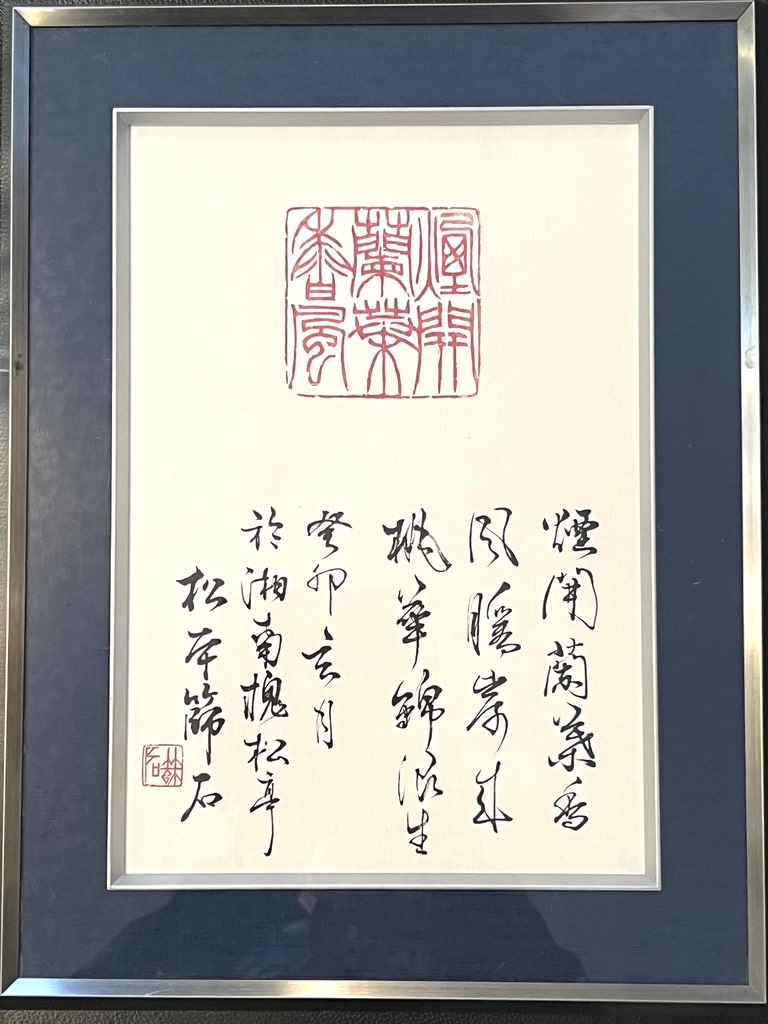 煙開
蘭葉
香風
煙開蘭葉香
風暖岸夾
桃華錦浪生
癸卯玄月
於湘南槐松亭
松本篩石